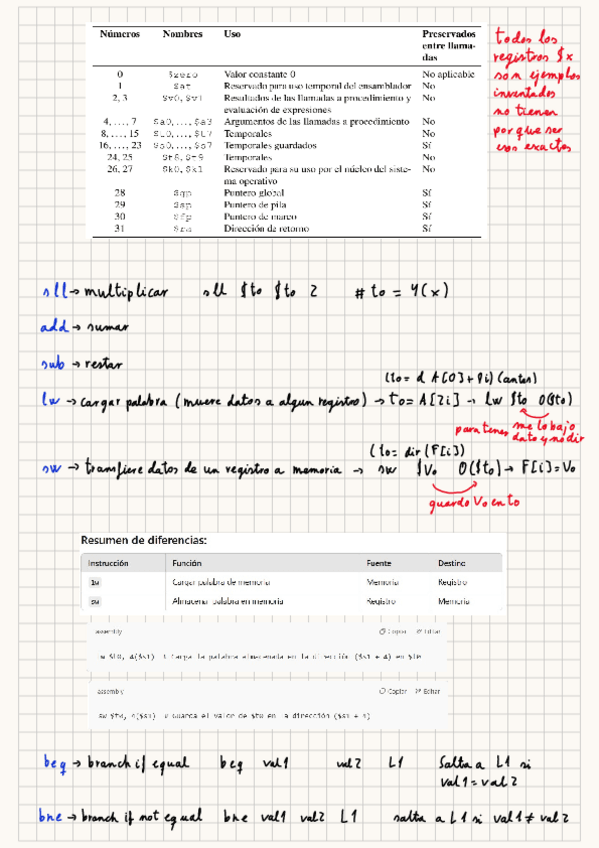 Números Nombres Uso Preservados
entre llama-
das
0 $zero Valor constante 0 No aplicable
1 $at Reservado para uso temporal del ensamblador No
2, 3 $v0, $v1 Resultados de las llamadas a procedimiento y No
evaluación de expresiones
4, ..., 7 $a0, ..., $a3 Argumentos de las llamadas a procedimiento No
8, ..., 15 $t0, ..., $t7 Temporales No
16, ..., 23 $s0, ..., $s7 Temporales guardados Sí
24, 25 $t8, $t9 Temporales No
26, 27 $k0, $k1 Reservado para su uso por el núcleo del siste- No
ma operativo
28 $gp Puntero global Sí
29 $sp Puntero de pila Sí
30 $fp Puntero de marco Sí
31 $ra Dirección de retorno Sí
todos los
registros $x
son ejemplos
inventados
no tienen
por que ser
esos exactos
sll → multiplicar sll $to $to 2 # to = 4(x)
add → sumar
sub → restar
(to = d A[0] + 8i) (antes)
lw → cargar palabra (mueve datos a algun registro) → to = A[2i] → lw $to 0($to)
para tener me lo bajo
dato y no dir
(to = dir (F[i])
sw → transfiere datos de un registro a memoria → sw $Vo 0($to) → F[i] = Vo
guardo Vo en to
Resumen de diferencias:
Instrucción Función Fuente Destino
lw Cargar palabra de memoria Memoria Registro
sw Almacenar palabra en memoria Registro Memoria
assembly Copiar Editar
w $t0, 4($s1) # Carga la palabra almacenada en la dirección ($s1 + 4) en $t0
assembly Copiar Editar
sw $t0, 4($s1) # Guarda el valor de $t0 en la dirección ($s1 + 4)
beq → branch if equal beq val1 val2 L1 Salta a L1 si
val1 = val2
bne → branch if not equal bne val1 val2 L1 salta a L1 si val1 ≠ val2